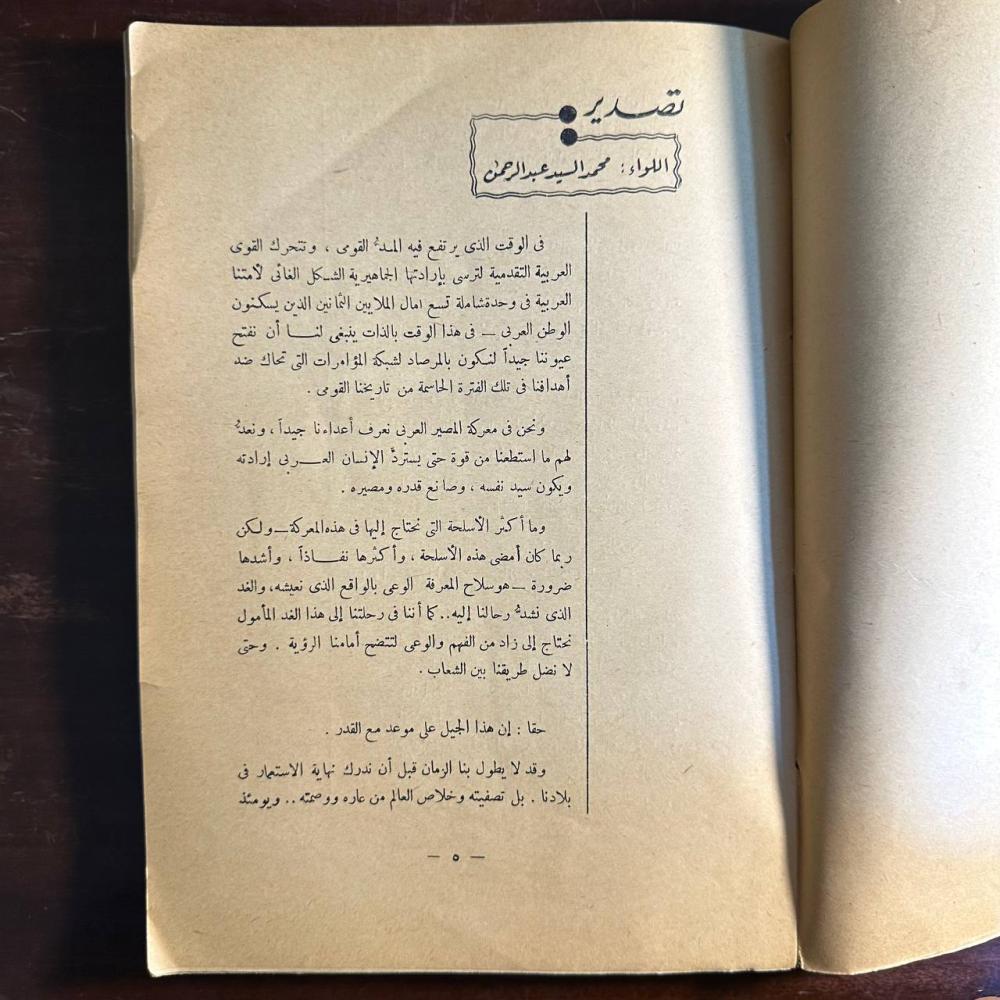 تصدير
اللواء : محمد السيد عبد الرحمن
فى الوقت الذى يرتفع فيه المدُّ القومى ، وتتحرك القوى
العربية التقدمية لترسى بإرادتها الجماهيرية الشكل الغائى لأمتنا
العربية فى وحدة شاملة تسع آمال الملايين الثمانين الذين يسكنون
الوطن العربى — فى هذا الوقت بالذات ينبغى لنا أن نفتح
عيوننا جيداً لنكون بالمرصاد لشبكة المؤامرات التى تحاك ضد
أهدافنا فى تلك الفترة الحاسمة من تاريخنا القومى .
ونحن فى معركة المصير العربى نعرف أعداءنا جيداً ، ونعدُّ
لهم ما استطعنا من قوة حتى يستردَّ الإنسان العربى إرادته
ويكون سيد نفسه ، وصانع قدره ومصيره .
وما أكثر الأسلحة التى نحتاج إليها فى هذه المعركة — ولكن
ربما كان أمضى هذه الأسلحة ، وأكثرها نفاذاً ، وأشدها
ضرورة — هو سلاح المعرفة الوعى بالواقع الذى نعيشه، والغد
الذى نشدُّ رحالنا إليه.. كما أننا فى رحلتنا إلى هذا الغد المأمول
نحتاج إلى زاد من الفهم والوعى لتتضح أمامنا الرؤية . وحتى
لا نضل طريقنا بين الشعاب .
حقا : إن هذا الجيل على موعد مع القدر .
وقد لا يطول بنا الزمان قبل أن ندرك نهاية الاستعمار فى
بلادنا . بل تصفيته وخلاص العالم من عاره ووصمته .. ويومئذ
— ٥ —